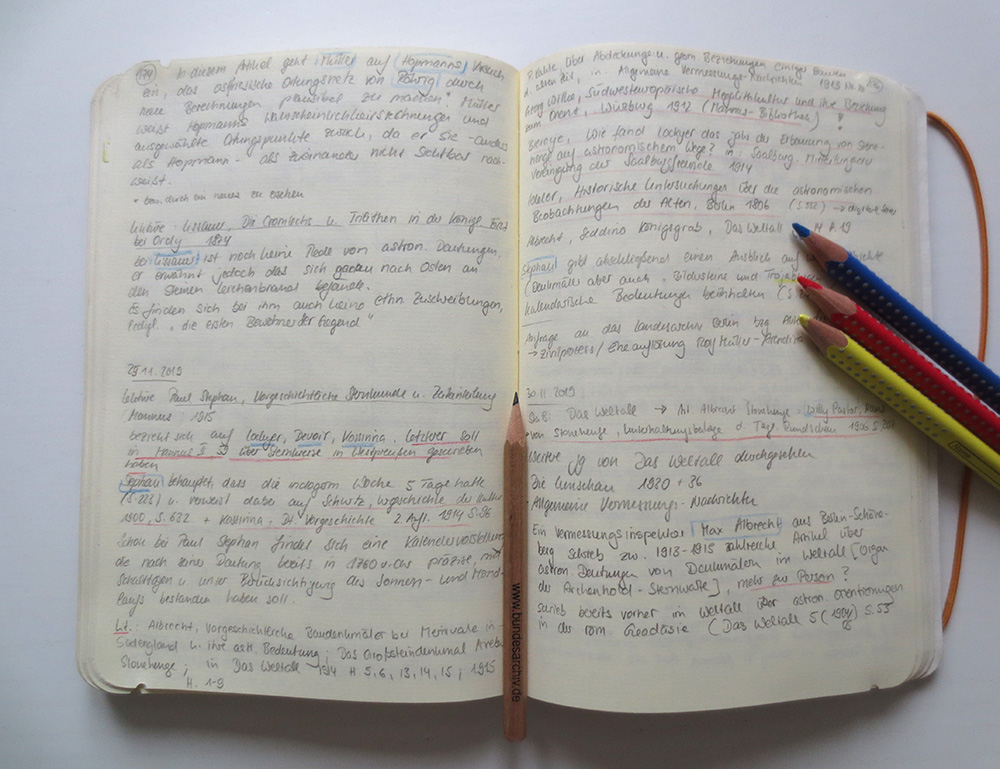 174 In diesem Artikel geht Müller auf Hopmanns Versuch
ein, das ostfriesische Ortungsnetz von Röhrig durch
neue Berechnungen plausibel zu machen. * Müller
weist Hopmanns Wahrscheinlichkeitsrechnungen und
ausgewählte Ortungspunkte zurück, da er sie - anders
als Hopmann - als zueinander nicht sichtbar nach-
weist.
* bzw. durch ein neues zu ersetzen
Lektüre: Lissauer, Die Cromlechs u. Trilithen in der Königl. Forst
bei Ordry 1874
bei Lissauer ist noch keine Rede von astron. Deutungen,
er erwähnt jedoch das sich nach Osten an
den Steinen Leichenbrand befände.
Es finden sich bei ihm auch keine ethn. Zuschreibungen,
ledigl. "die ersten Bewohner der Gegend"
29.11.2019
Lektüre Paul Stephan, Vorgeschichtliche Sternkunde u. Zeiteinteilung
Mannus: 1915
bezieht sich auf Lockyer, Devoir, Kossinna, letzterer soll
in Mannus II über Steinkreise in Westpreußen geschrieben
haben
Stephan behauptet, dass die indogerm Woche 5 Tage hatte
(S.225) u. verweist dabei auf Schurtz, Urgeschichte der Kultur
1900, S.622 + Kossinna, Dt. Vorgeschichte 2. Aufl. 1914 S.96
Schon bei Paul Stephan findet sich eine Kalendervorstellung
die nach seiner Deutung bereits in 1760 v. Chr präzise, mit
Schalttagen u. unter Berücksichtigung des Sonnen- und Mond-
laufs bestanden haben soll.
Lt.: Albrecht, Vorgeschichtliche Baudenkmäler bei Merrivale in
Südengland u. ihre astr. Bedeutung; Das Großsteindenkmal Avebury
Stonehenge; in Das Weltall 1914 H. 5, 6, 13, 14, 15; 1915
H. 1-9
über Absteckungs- u. geom Beziehungen einiger Bauten
d. alten Zeit, in Allgemeine Vermessungs-Nachrichten 1913 Nr.
Georg Wilke, Südwesteuropäische Megalithkultur und ihre Beziehung
zum Orient, Würzburg 1912 (Mannus-Bibliothek) !
Bereye, Wie fand Lockyer das Jahr der Erbauung von Stone-
henge auf astronomischem Wege? in: Saalburg. Mitteilungen
Vereinigung der Saalburgfreunde 1914
Ideler, Historische Untersuchungen über die astronomischen
Beobachtungen der Alten, Berlin 1806 (S.352) →
Albrecht, Seddiner Königsgrab, Das Weltall H A.19
Stephan gibt abschließend einen Ausblick auf
(Denkmäler aber auch "Bildsteine und
kalendarische Bedeutungen beinhalten (S
Anfrage an das Landesarchiv Berlin bzg.
→ Zivilprozess/ Eheauflösung Rolf Müller-
30.11.2019
StaB: Das Weltall → Art. Albrecht Stonehenge: Willy Pastor,
von Stonehenge, Unterhaltungsbeilage d. Tägl. Rundschau 1906 S.
Weitere Jg von Das Weltall durchgesehen
Die Umschau 1920 + 36
- Allgemeine Vermessungs-Nachrichten
Ein Vermessungsinspektor Max Albrecht aus Berlin-Schöne-
berg schrieb zw. 1913-1915 zahlreiche Artikel über
astron. Deutungen von Denkmälern im Weltall [Organ
der Archenhold-Sternwarte], mehr zur Person?
schrieb bereits vorher im Weltall über astron. Orientierungen
in der röm. Geodäsie (Das Weltall 5 (1904) S.55
www.bundesarchiv.de